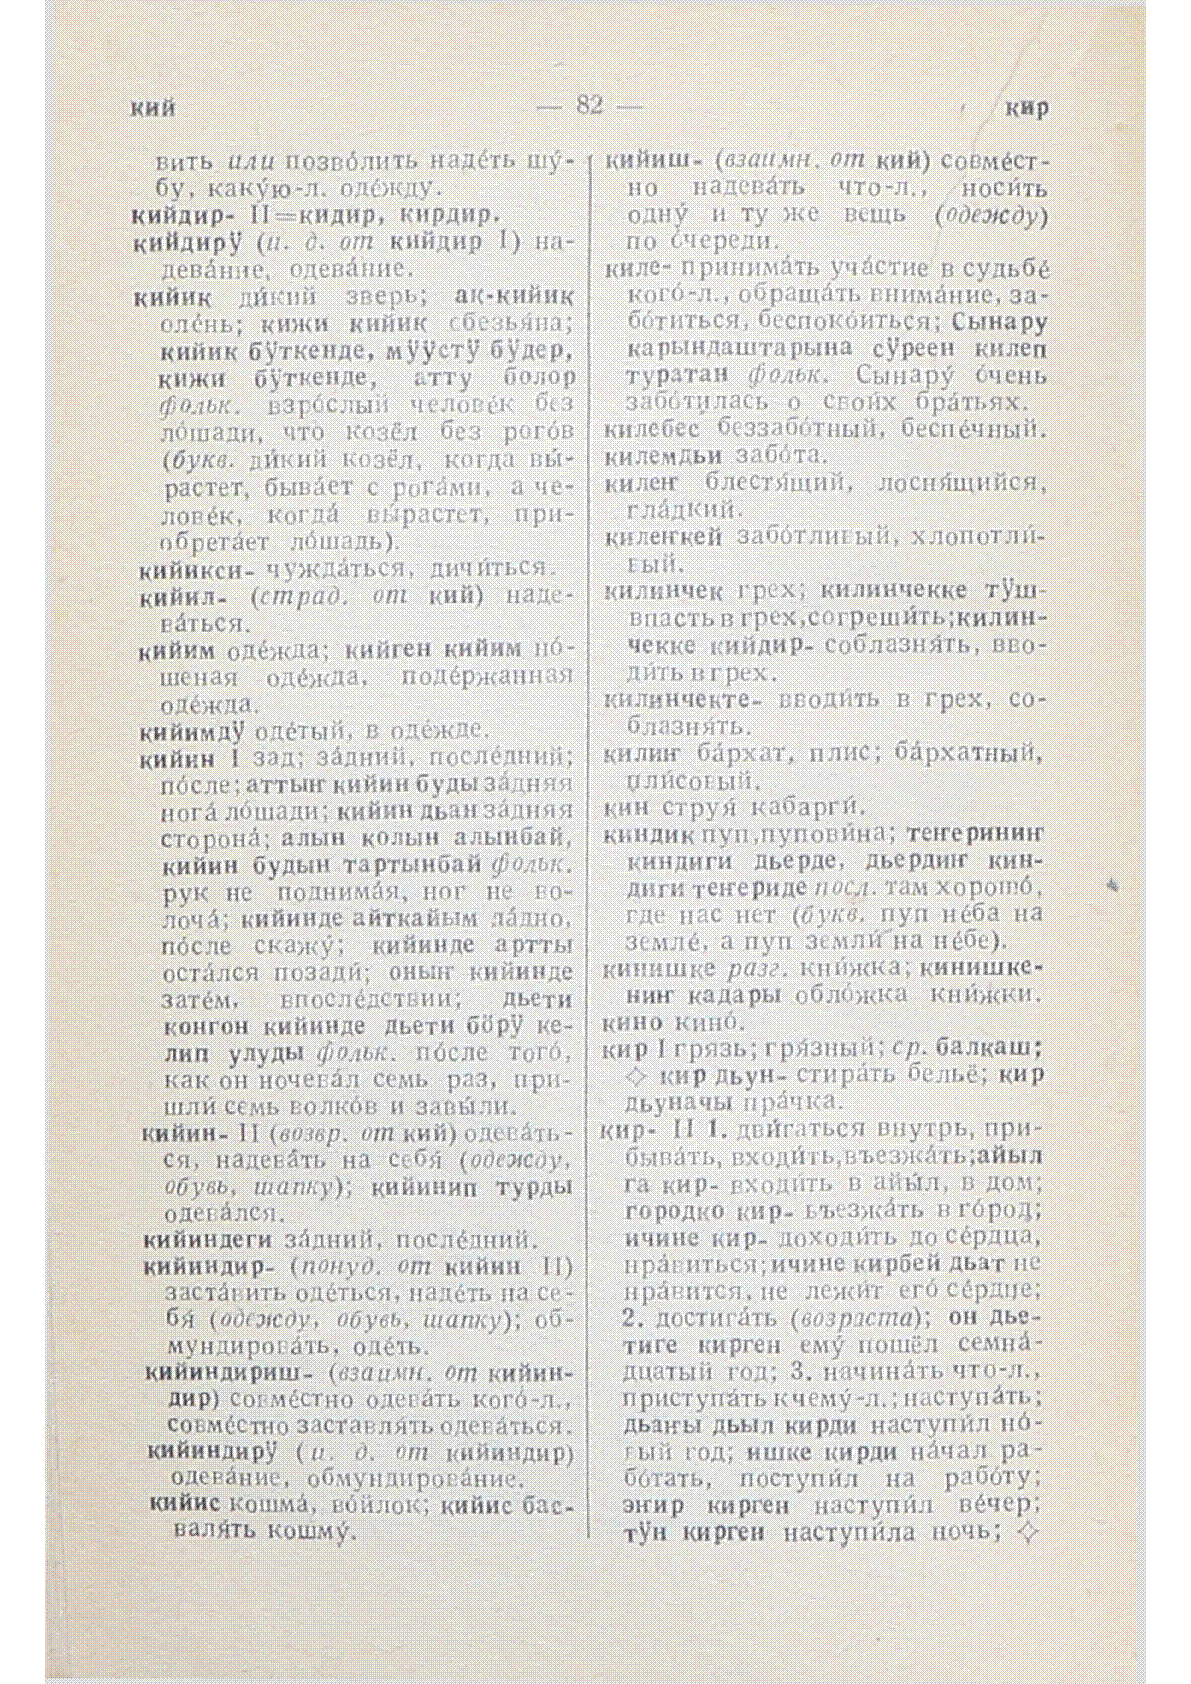 кий
— 82 —
кир
вить или позво́лить наде́ть шу́-
бу, каку́ю-л. оде́жду.
кийдир- II=кидир, кирдир.
кийдирӱ (и. д. от кийдир I) на-
дева́ние, одева́ние.
кийик ди́кий зверь; ак-кийик
оле́нь; кижи кийик обезья́на;
кийик бӱткенде, мӱӱстӱ бӱдер,
кижи бӱткенде, атту болор
фольк. взро́слый челове́к без
ло́шади, что козёл без рого́в
(букв. ди́кий козёл, когда вы́-
растет, быва́ет с рога́ми, а че-
лове́к, когда́ вы́растет, при-
обрета́ет ло́шадь).
кийикси- чужда́ться, дичи́ться.
кийил- (страд. от кий) наде-
ва́ться.
кийим оде́жда; кийген кийим но́-
шеная оде́жда, поде́ржанная
оде́жда.
кийимдӱ оде́тый, в оде́жде.
кийин I зад; за́дний, после́дний;
по́сле; аттыҥ кийин буды за́дняя
нога́ ло́шади; кийин дьан за́дняя
сторона́; алын колын алынбай,
кийин будын тартынбай фольк.
рук не поднима́я, ног не во-
лоча́; кийинде айткайым ла́дно,
по́сле скажу́; кийинде артты
оста́лся позади́; оныҥ кийинде
зате́м, впосле́дствии; дьети
конгон кийинде дьети бӧрӱ ке-
лип улуды фольк. по́сле того́,
как он ночева́л семь раз, при-
шли́ семь волко́в и завы́ли.
кийин- II (возвр. от кий) одева́ть-
ся, надева́ть на себя́ (одежду,
обувь, шапку); кийинип турды
одева́лся.
кийиндеги за́дний, после́дний.
кийиндир- (понуд. от кийин II)
заста́вить оде́ться, наде́ть на се-
бя́ (одежду, обувь, шапку); об-
мундирова́ть, оде́ть.
кийиндириш- (взаимн. от кийин-
дир) совме́стно одева́ть кого́-л.,
совме́стно заставля́ть одева́ться.
кийиндирӱ (и. д. от кийиндир)
одева́ние, обмундирова́ние.
кийис кошма́, во́йлок; кийис бас-
валя́ть кошму́.
кийиш- (взаимн. от кий) совме́ст-
но надева́ть что-л., носи́ть
одну́ и ту же вещь (одежду)
по о́череди.
киле- принима́ть уча́стие в судьбе́
кого́-л., обраща́ть внима́ние, за-
бо́титься, беспоко́иться; Сынару
карындаштарына сӱреен килеп
туратан фольк. Сынару́ о́чень
забо́тилась о свои́х бра́тьях.
килебес беззабо́тный, беспе́чный.
килемдьи забо́та.
килеҥ блестя́щий, лосня́щийся,
гла́дкий.
килеҥкей забо́тливый, хлопотли́-
вый.
килинчек грех; килинчекке тӱш-
впасть в грех, согреши́ть; килин-
чекке кийдир- соблазня́ть, вво-
ди́ть в грех.
килинчекте- вводи́ть в грех, со-
блазня́ть.
килиҥ ба́рхат, плис; ба́рхатный,
пли́совый.
кин струя́ кабарги́.
киндик пуп, пупови́на; теҥерининг
киндиги дьерде, дьердиҥ кин-
диги теҥериде посл. там хорошо́,
где нас нет (букв. пуп не́ба на
земле́, а пуп земли́ на не́бе).
кинишке разг. кни́жка; кинишке-
ниҥ кадары обло́жка кни́жки.
кино кино́.
кир I грязь; гря́зный; ср. балкаш;
◇ кир дьун- стира́ть бельё; кир
дьуначы пра́чка.
кир- II 1. дви́гаться внутрь, при-
быва́ть, входи́ть, въезжа́ть; айыл
га кир- входи́ть в айы́л, в дом;
городко кир- въезжа́ть в го́род;
ичине кир- доходи́ть до се́рдца,
нра́виться; ичине кирбей дьат не
нра́вится, не лежи́т его́ се́рдце;
2. достига́ть (возраста); он дье-
тиге кирген ему́ пошёл семна́-
дцатый год; 3. начина́ть что-л.,
приступа́ть к чему́-л.; наступа́ть;
дьаҥы дьыл кирди наступи́л но́-
вый год; ишке кирди на́чал ра-
бо́тать, поступи́л на рабо́ту;
эҥир кирген наступи́л ве́чер;
тӱн кирген наступи́ла ночь; ◇